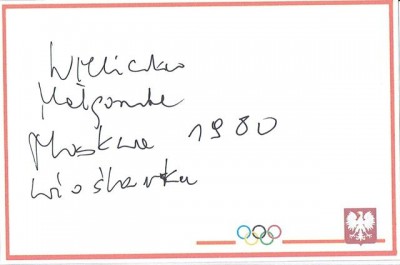 Wieliczko
Małgorzata
Moskwa 1980
Wioślarka